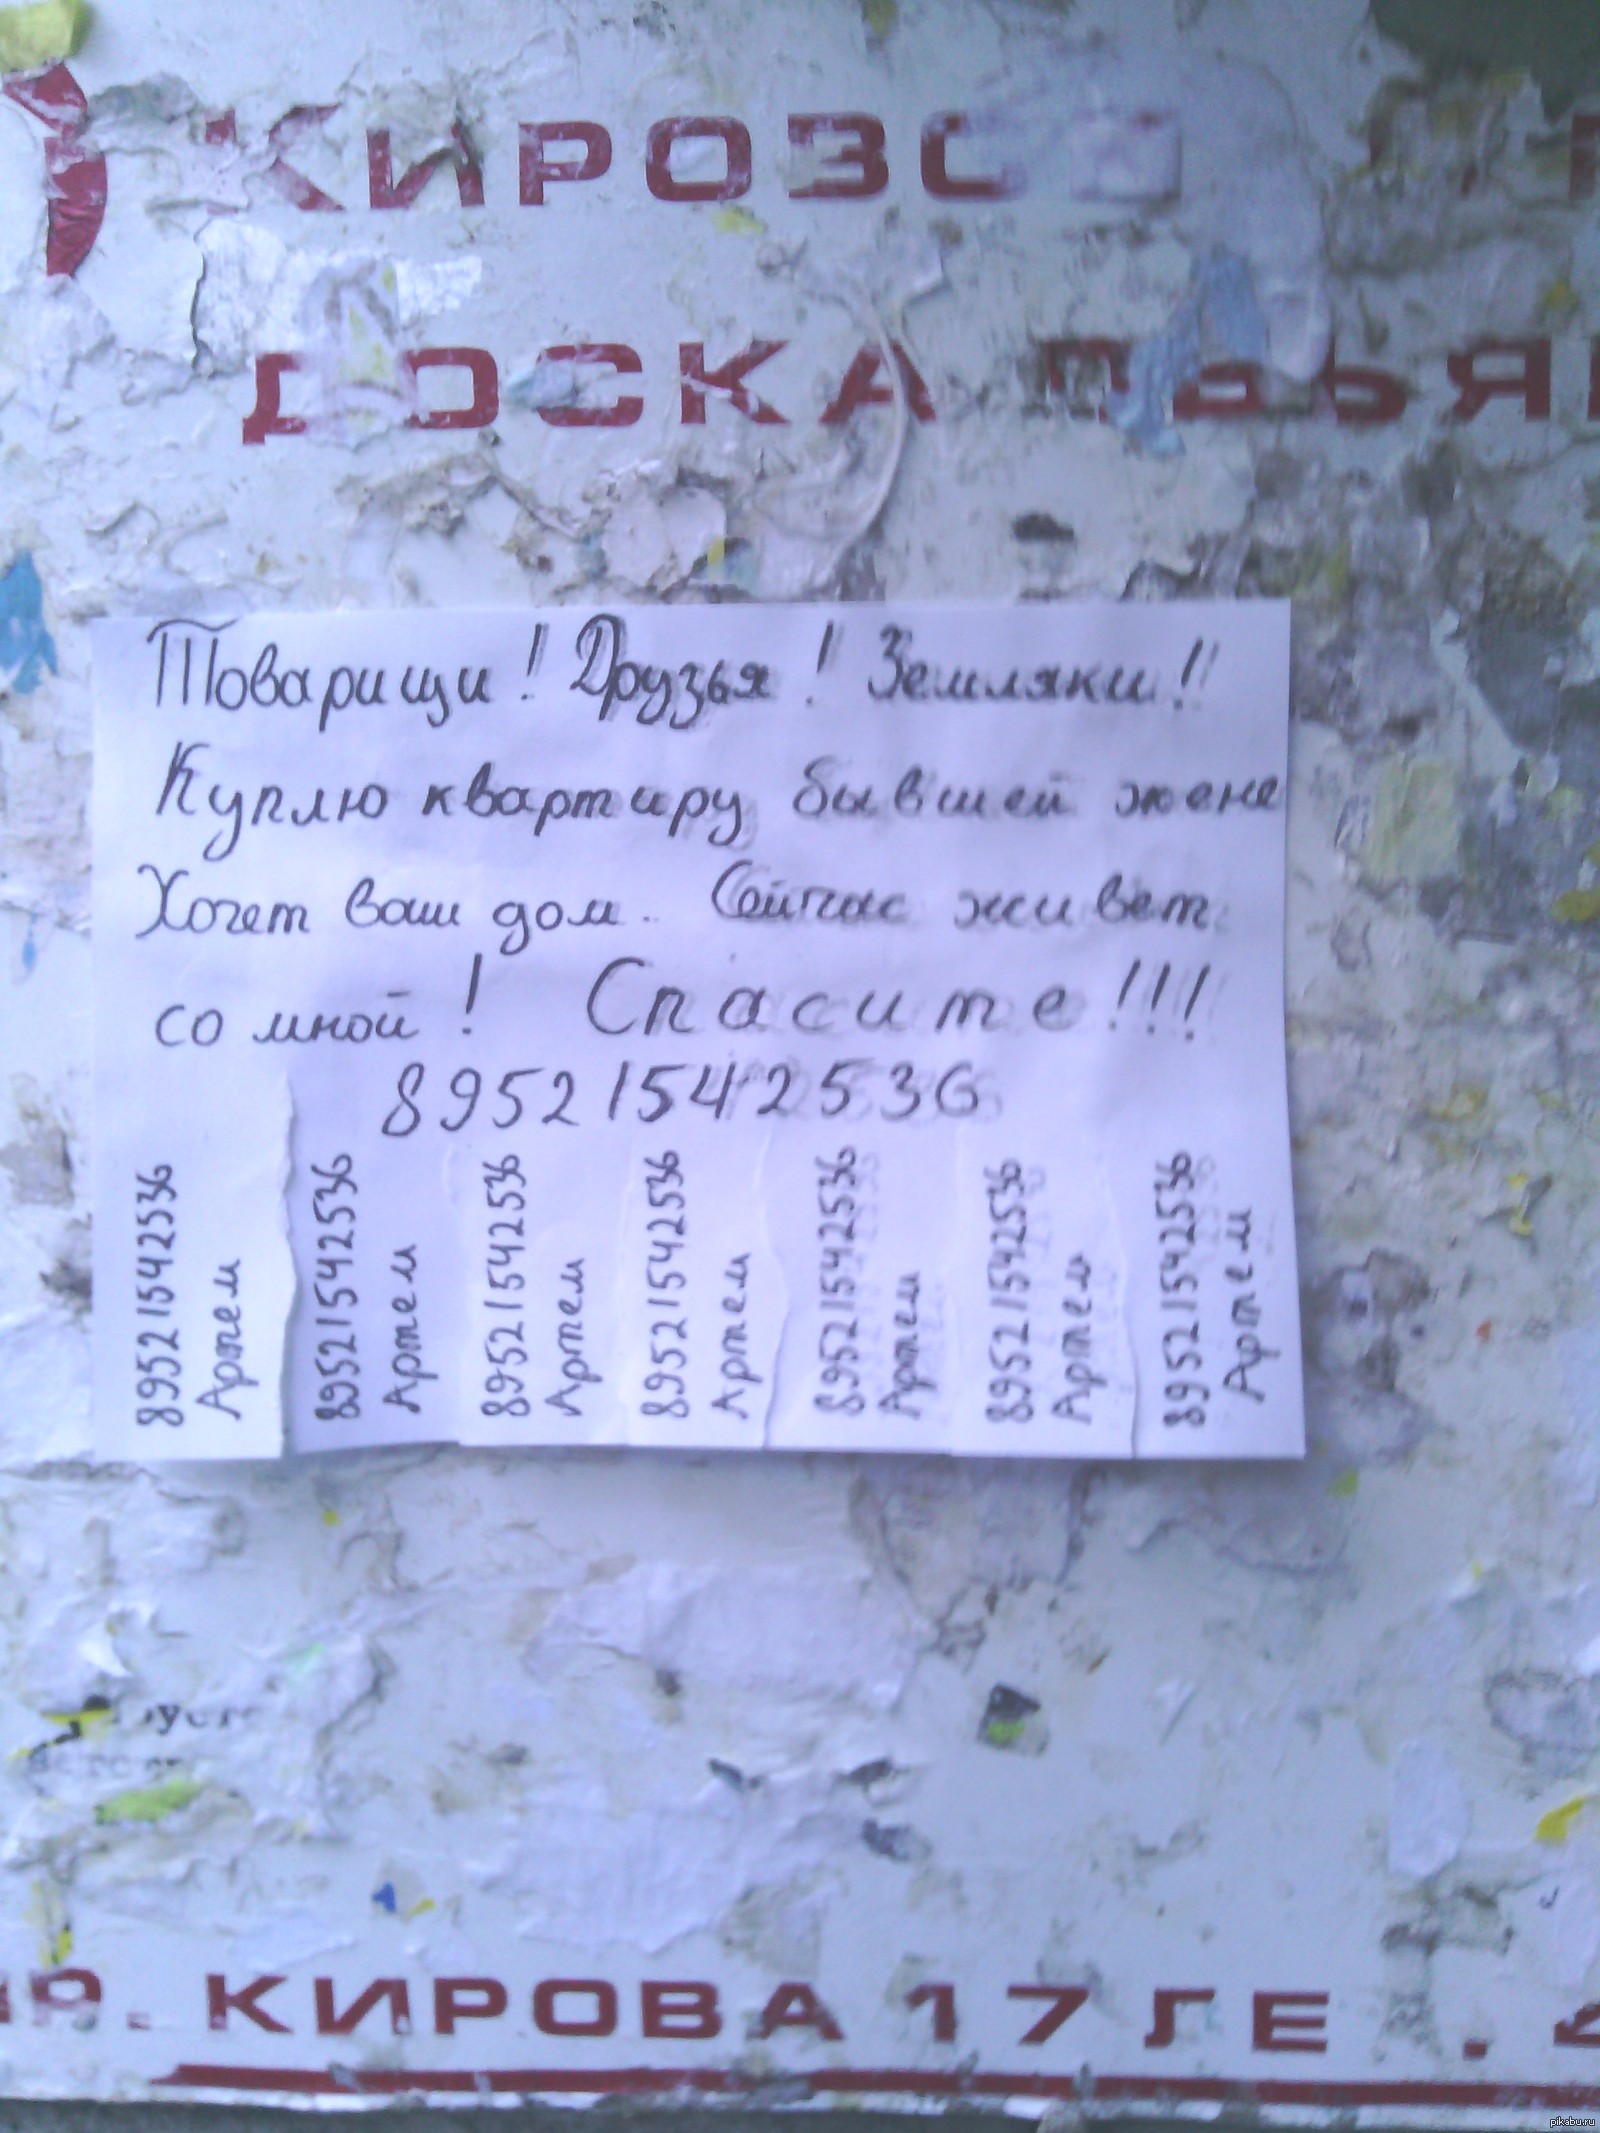 КИРОВС
ДОСКА
Товарищи! Друзья! Земляки!!
Куплю квартиру бывшей жене
Хочет ваш дом.. Сейчас живет
со мной! Спасите!!!
89521542536
89521542536
Артем
89521542536
Артем
89521542536
Артем
89521542536
Артем
89521542536
Артем
89521542536
Артем
89521542536
Артем
КИРОВА 17
pikabu.ru